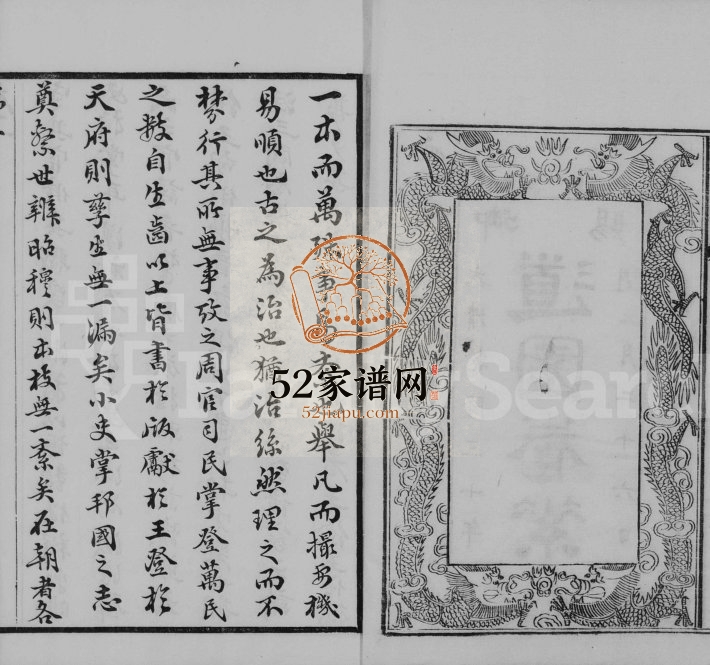 一本而萬殊 舉凡而撮要機
易順也古之為治也猶治絲然理之而不
棼行其所無事攷之周官司民掌登萬民
之數自生齒以上皆書於版獻於王登於
天府則孳生無一漏矣小史掌邦國之志
奠繫世辨昭穆則本枝無一紊矣在朝者各
52家谱网
52jiapu.com